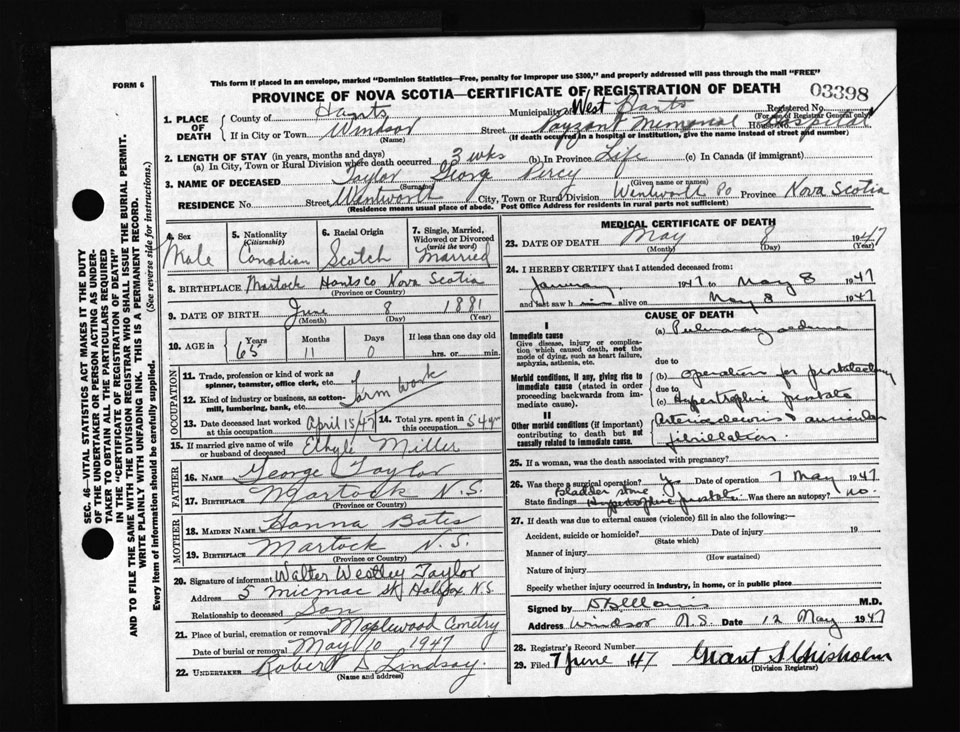 FORM 6
This form if placed in an envelope, marked "Dominion Statistics—Free, penalty for improper use $300," and properly addressed will pass through the mail "FREE"
PROVINCE OF NOVA SCOTIA—CERTIFICATE OF REGISTRATION OF DEATH
03398
Registered No.
(For use of Registrar General only)
1. PLACE OF DEATH
County of Hants Municipality of West Hants
If in City or Town Windsor Street Payzant Memorial Hospital
(Name) (If death occurred in a hospital or institution, give the name instead of street and number)
2. LENGTH OF STAY (in years, months and days)
(a) In City, Town or Rural Division where death occurred 3 wks (b) In Province Life (c) In Canada (if immigrant)
3. NAME OF DECEASED Taylor George Percy
(Surname) (Given name or names)
RESIDENCE No. Street Wentworth City, Town or Rural Division Wentworth Po Province Nova Scotia
(Residence means usual place of abode. Post Office Address for residents in rural parts not sufficient)
4. Sex Male
5. Nationality (Citizenship) Canadian
6. Racial Origin Scotch
7. Single, Married, Widowed or Divorced (write the word) Married
8. BIRTHPLACE Martock Hants Co Nova Scotia
(Province or Country)
9. DATE OF BIRTH June 8 1881
(Month) (Day) (Year)
10. AGE in Years Months Days If less than one day old
65 11 0 hrs. or min.
OCCUPATION
11. Trade, profession or kind of work as spinner, teamster, office clerk, etc. Farm Work
12. Kind of industry or business, as cotton-mill, lumbering, bank, etc.
13. Date deceased last worked at this occupation April 15 47
14. Total yrs. spent in this occupation 54 yrs
15. If married give name of wife or husband of deceased Ethyle Miller
FATHER
16. NAME George Taylor
17. BIRTHPLACE Martock N.S.
(Province or Country)
MOTHER
18. MAIDEN NAME Hanna Bates
19. BIRTHPLACE Martock N.S.
(Province or Country)
20. Signature of informant Walter Westley Taylor
Address 5 Micmac St Halifax N.S.
Relationship to deceased Son
21. Place of burial, cremation or removal Maplewood Cemetry
Date of burial or removal May 10 1947
22. UNDERTAKER Robert D Lindsay.
(Name and address)
MEDICAL CERTIFICATE OF DEATH
23. DATE OF DEATH May 8 1947
(Month) (Day) (Year)
24. I HEREBY CERTIFY that I attended deceased from:
January 1947 to May 8 1947
and last saw him alive on May 8 1947
CAUSE OF DEATH
I
Immediate cause (a) Pulmonary oedema
Give disease, injury or complication which caused death, not the mode of dying, such as heart failure, asphyxia, asthenia, etc.
due to
Morbid conditions, if any, giving rise to immediate cause (stated in order proceeding backwards from immediate cause).
(b) Operation for prostatectomy
due to
(c) Hypertrophic prostate
II
Other morbid conditions (if important) contributing to death but not causally related to immediate cause.
Arteriosclerosis auricular
fibrillation.
25. If a woman, was the death associated with pregnancy?
26. Was there a surgical operation? yes Date of operation 7 May 1947
State findings Bladder stone Hypertrophic prostate Was there an autopsy? no.
27. If death was due to external causes (violence) fill in also the following:—
Accident, suicide or homicide? Date of injury 19
(State which)
Manner of injury
(How sustained)
Nature of injury
Specify whether injury occurred in industry, in home, or in public place
Signed by M.D.
Address Windsor N.S. Date 12 May 1947
28. Registrar's Record Number
29. Filed 7 June 47 Grant S Chisholm
(Division Registrar)
SEC. 46—VITAL STATISTICS ACT MAKES IT THE DUTY
OF THE UNDERTAKER OR PERSON ACTING AS UNDER-
TAKER TO OBTAIN ALL THE PARTICULARS REQUIRED
IN THE "CERTIFICATE OF REGISTRATION OF DEATH"
AND TO FILE THE SAME WITH THE DIVISION REGISTRAR WHO SHALL ISSUE THE BURIAL PERMIT.
WRITE PLAINLY WITH UNFADING INK. THIS IS A PERMANENT RECORD.
Every item of information should be carefully supplied. (See reverse side for instructions.)